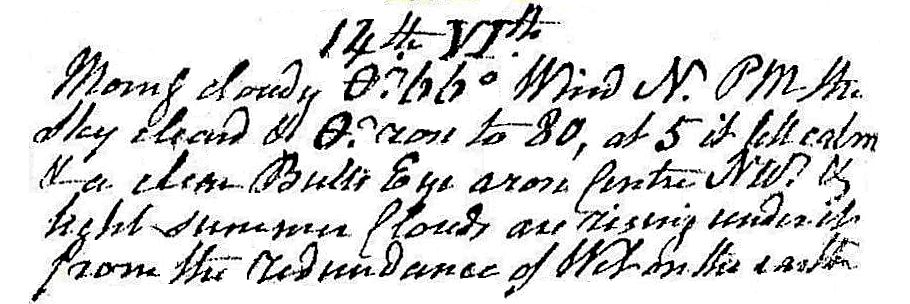 14th VIth
Morng cloudy θr 66° Wind Nr PM the
sky cleard & θr rose to 80, at 5 it fell calm
& a clear Bulls Eye arose Centre NWr &
light summer Clouds are rising under it
from the redundance of Wet on the earth